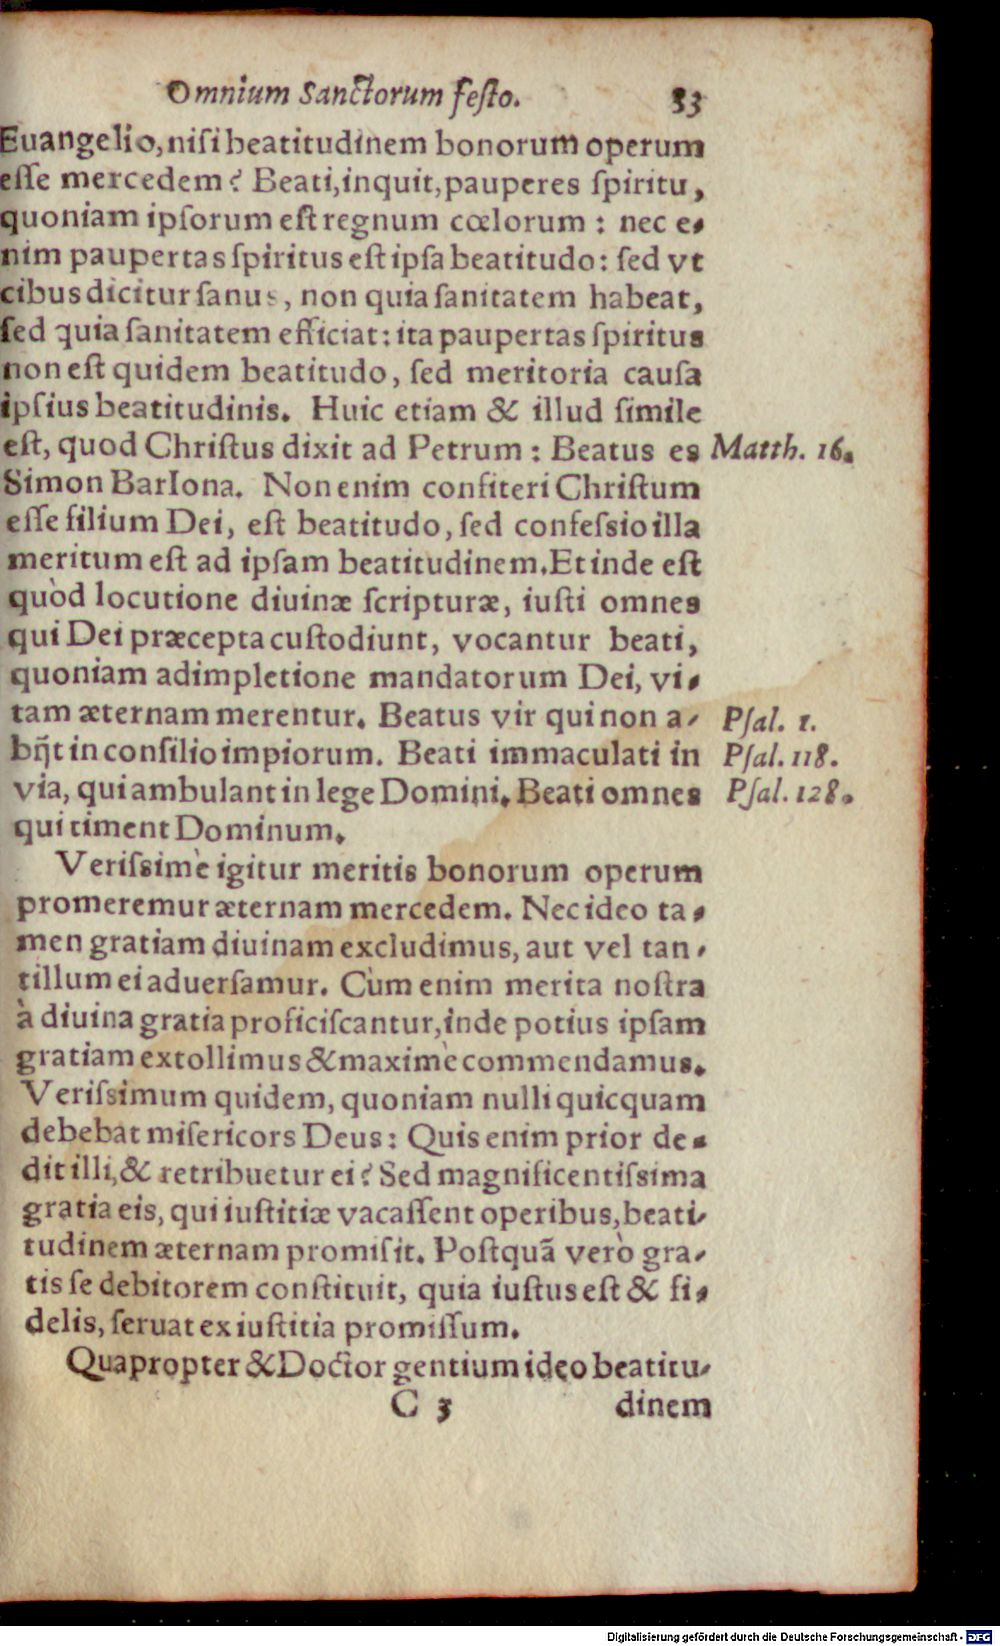 Omnium Sanctorum festo. 33
Euangelio, nisi beatitudinem bonorum operum
esse mercedem? Beati, inquit, pauperes spiritu,
quoniam ipsorum est regnum cœlorum: nec e-
nim paupertas spiritus est ipsa beatitudo: sed vt
cibus dicitur sanus, non quia sanitatem habeat,
sed quia sanitatem efficiat: ita paupertas spiritus
non est quidem beatitudo, sed meritoria causa
ipsius beatitudinis. Huic etiam & illud simile
est, quod Christus dixit ad Petrum: Beatus es Matth. 16.
Simon BarIona. Non enim confiteri Christum
esse filium Dei, est beatitudo, sed confessio illa
meritum est ad ipsam beatitudinem. Et inde est
quòd locutione diuinæ scripturæ, iusti omnes
qui Dei præcepta custodiunt, vocantur beati,
quoniam adimpletione mandatorum Dei, vi-
tam æternam merentur. Beatus vir qui non a- Psal. 1.
bijt in consilio impiorum. Beati immaculati in Psal. 118.
via, qui ambulant in lege Domini. Beati omnes Psal. 128.
qui timent Dominum.
Verissimè igitur meritis bonorum operum
promeremur æternam mercedem. Nec ideo ta-
men gratiam diuinam excludimus, aut vel tan-
tillum ei aduersamur. Cùm enim merita nostra
à diuina gratia proficiscantur, inde potius ipsam
gratiam extollimus & maximè commendamus.
Verissimum quidem, quoniam nulli quicquam
debebat misericors Deus: Quis enim prior de-
dit illi, & retribuetur ei? Sed magnificentissima
gratia eis, qui iustitiæ vacassent operibus, beati-
tudinem æternam promisit. Postquã verò gra-
tis se debitorem constituit, quia iustus est & fi-
delis, seruat ex iustitia promissum.
Quapropter & Doctor gentium ideo beatitu-
C 3 dinem
Digitalisierung gefördert durch die Deutsche Forschungsgemeinschaft - DFG